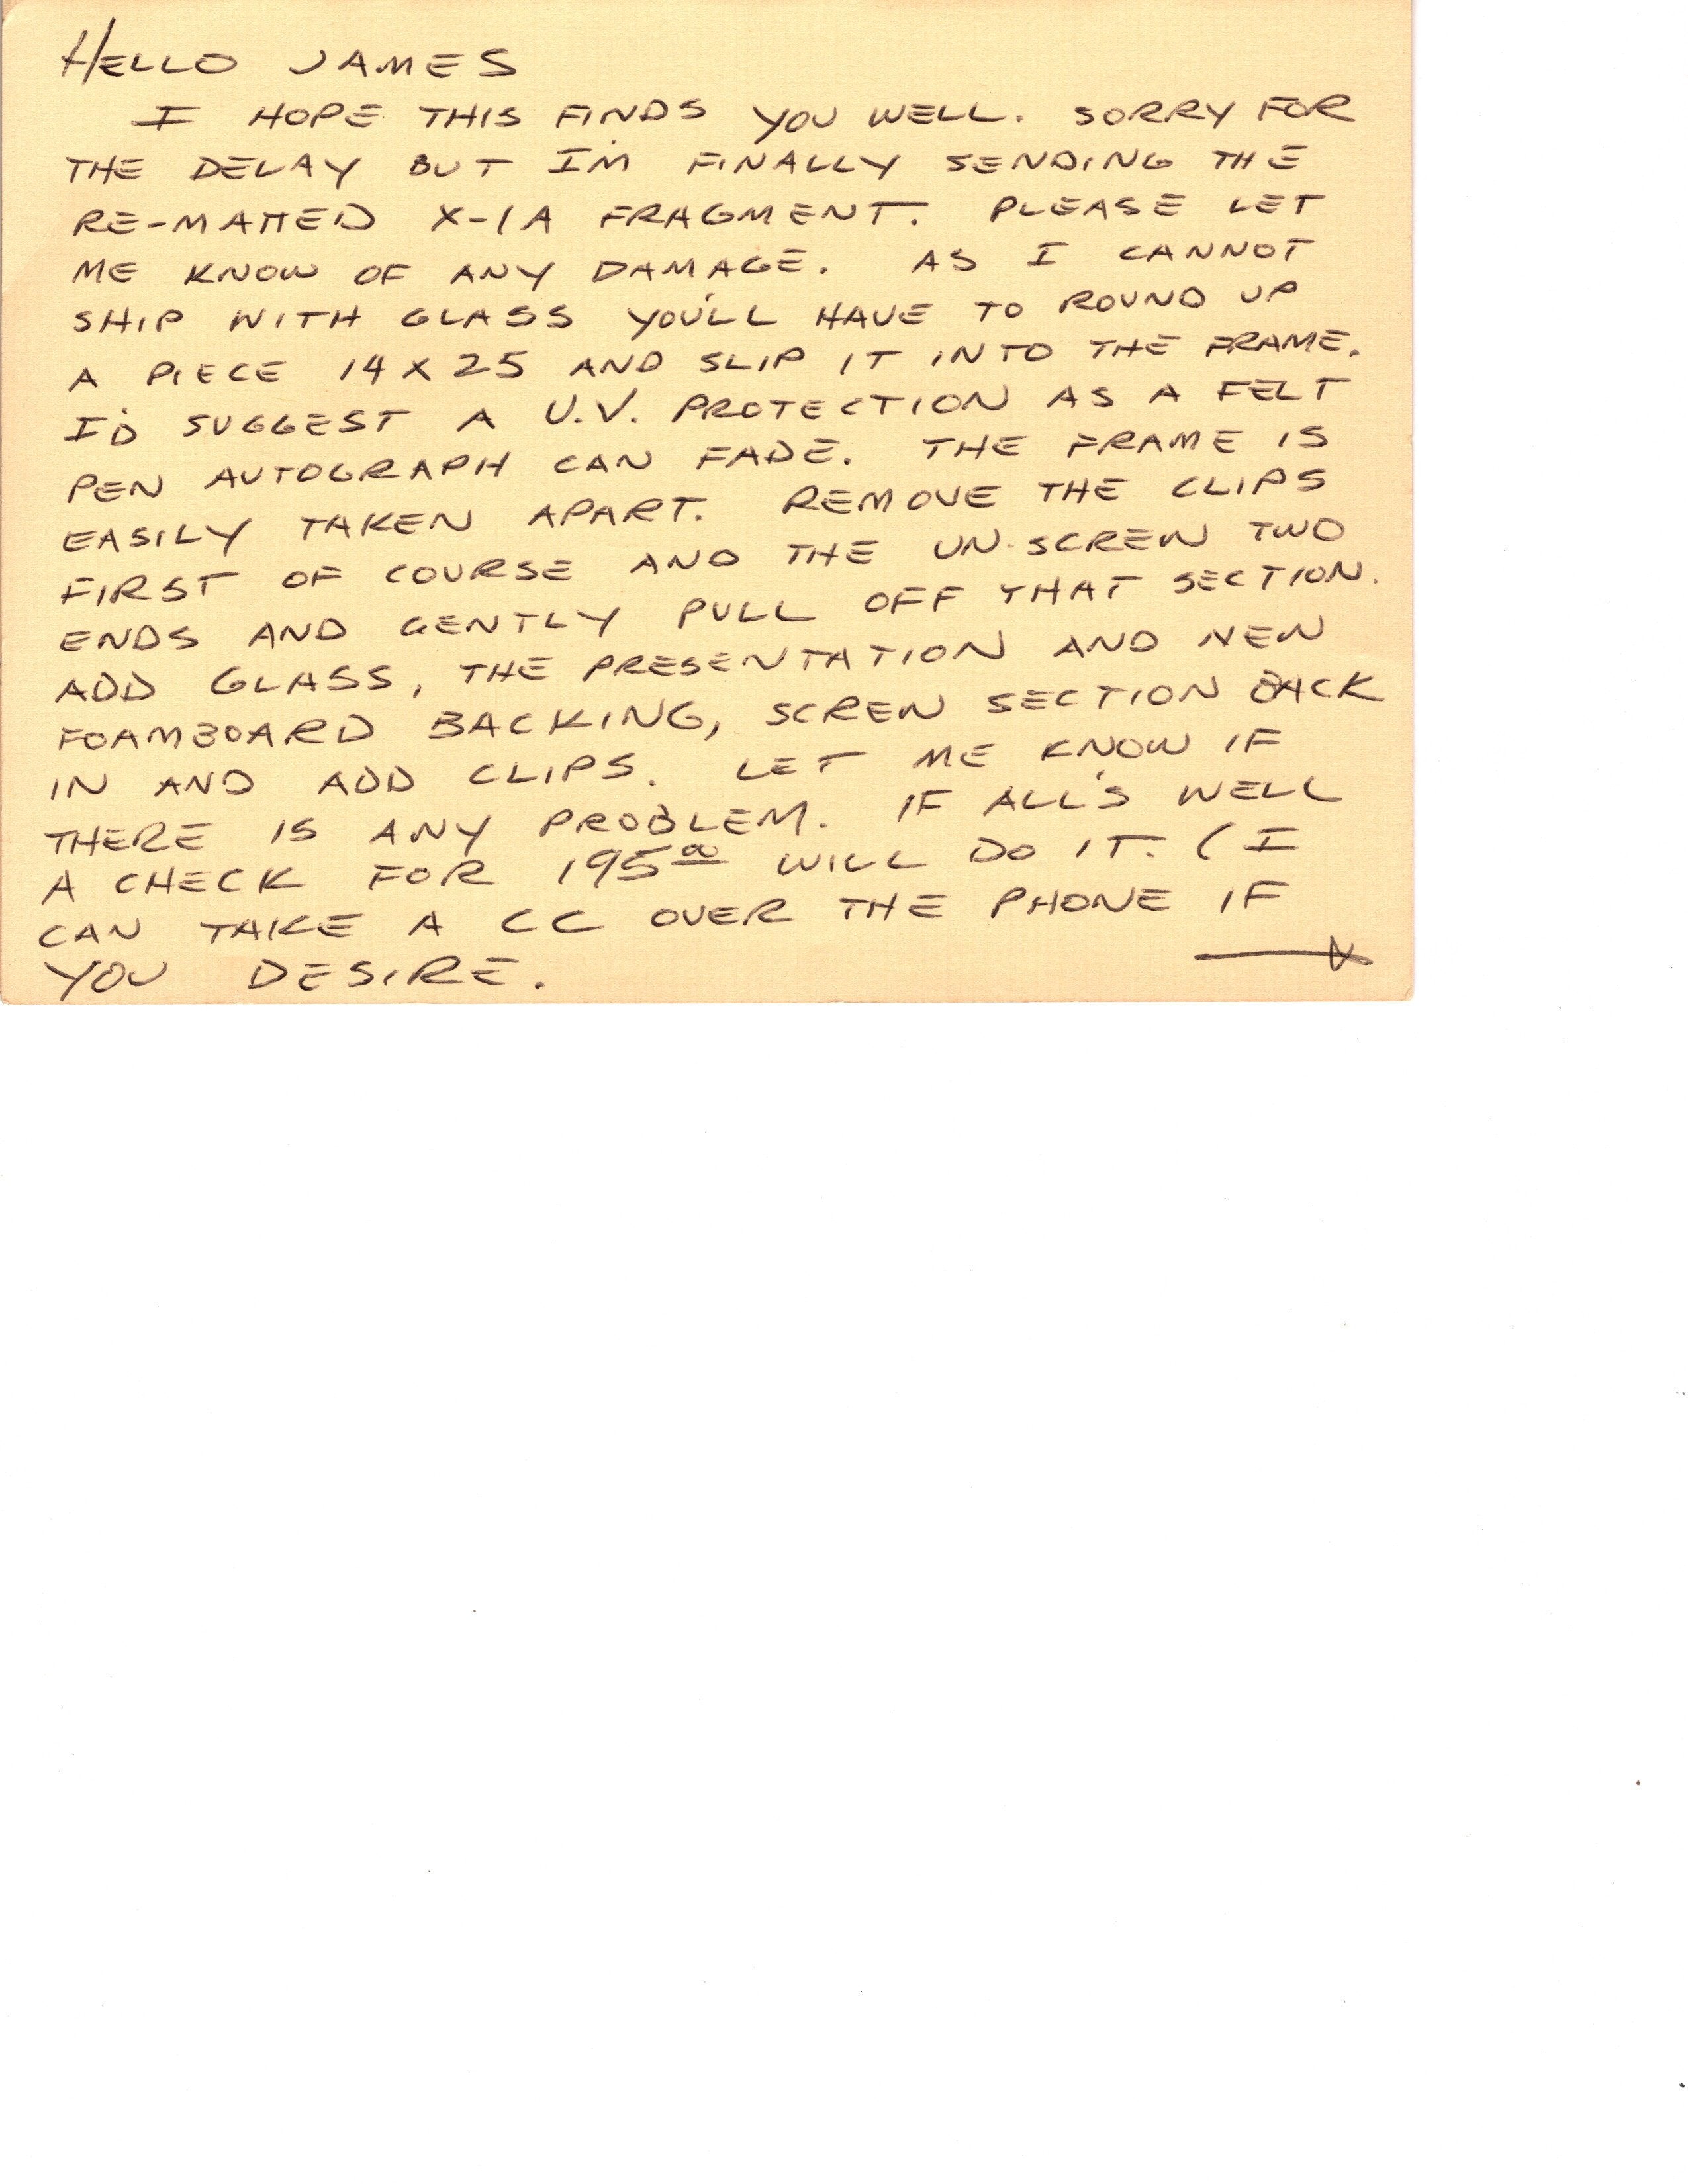 HELLO JAMES
I HOPE THIS FINDS YOU WELL. SORRY FOR
THE DELAY BUT I'M FINALLY SENDING THE
RE-MATTED X-1A FRAGMENT. PLEASE LET
ME KNOW OF ANY DAMAGE. AS I CANNOT
SHIP WITH GLASS YOU'LL HAVE TO ROUND UP
A PIECE 14 X 25 AND SLIP IT INTO THE FRAME.
I'D SUGGEST A U.V. PROTECTION AS A FELT
PEN AUTOGRAPH CAN FADE. THE FRAME IS
EASILY TAKEN APART. REMOVE THE CLIPS
FIRST OF COURSE AND THE UN-SCREW TWO
ENDS AND GENTLY PULL OFF THAT SECTION.
ADD GLASS, THE PRESENTATION AND NEW
FOAMBOARD BACKING, SCREW SECTION BACK
IN AND ADD CLIPS. LET ME KNOW IF
THERE IS ANY PROBLEM. IF ALL'S WELL
A CHECK FOR 195⁰⁰ WILL DO IT. (I
CAN TAKE A CC OVER THE PHONE IF
YOU DESIRE. →